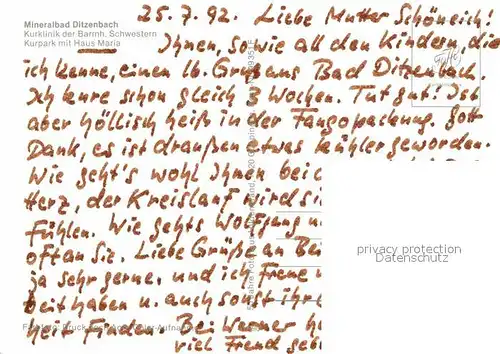 Mineralbad Ditzenbach
Kurklinik der Barmh. Schwestern
Kurpark mit Haus Maria
25.7.92. Liebe Mutter Schöneich!
Ihnen, sowie all den Kindern, die
ich kenne, einen lb. Gruß aus Bad Ditzenbach.
Ich kure schon gleich 3 Wochen. Tut gut! Ist
aber höllisch heiß in der Fangopackung. Gott
Dank, es ist draußen etwas kühler geworden.
Wie geht's wohl Ihnen bei d
Herz, der Kreislauf wird si
Fühlen. Wie gehts Wolfgang u
oft an Sie. Liebe Grüße an Be
ja sehr gerne. und ich Freue
beit haben u. auch sonst ihre
heit Finden. Bei Werner h
viel Freud
privacy protection
Datenschutz